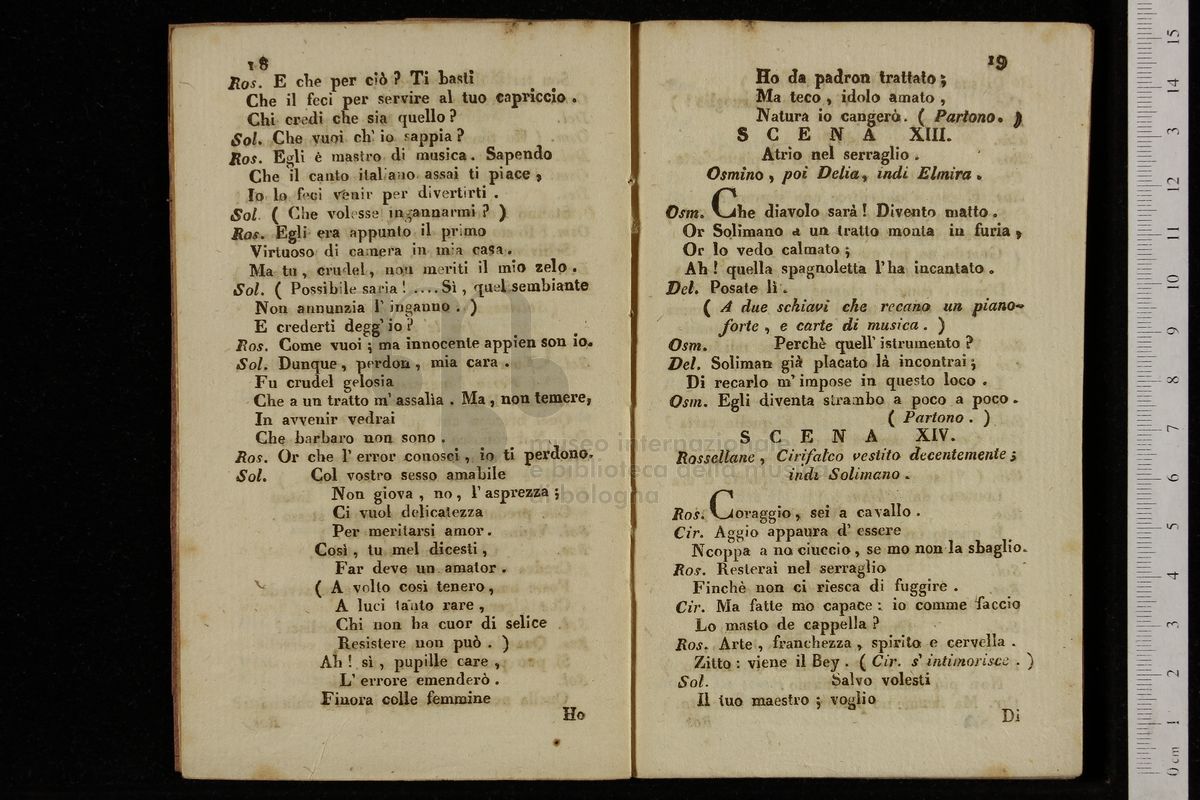 18
Ros. E che per ciò ? Ti basti
Che il feci per servire al tuo capriccio .
Chi credi che sia quello ?
Sol. Che vuoi ch' io sappia ?
Ros. Egli è mastro di musica. Sapendo
Che il canto italiano assai ti piace ,
Io lo feci venir per divertirti .
Sol. ( Che volesse ingannarmi ? )
Ros. Egli era appunto il primo
Virtuoso di camera in mia casa .
Ma tu , crudel , non meriti il mio zelo .
Sol. ( Possibile saria ! .... Sì , quel sembiante
Non annunzia l' inganno . )
E crederti degg' io ?
Ros. Come vuoi ; ma innocente appien son io.
Sol. Dunque , perdon , mia cara .
Fu crudel gelosia
Che a un tratto m' assalìa . Ma , non temere,
In avvenir vedrai
Che barbaro non sono .
Ros. Or che l' error conosci , io ti perdono.
Sol. Col vostro sesso amabile
Non giova , no , l' asprezza ;
Ci vuol delicatezza
Per meritarsi amor .
Così , tu mel dicesti ,
Far deve un amator .
( A volto così tenero ,
A luci tanto rare ,
Chi non ha cuor di selice
Resistere non può . )
Ah ! sì , pupille care ,
L' errore emenderò .
Finora colle femmine
Ho
19
Ho da padron trattato ;
Ma teco , idolo amato ,
Natura io cangerò . ( Partono. )
S C E N A XIII.
Atrio nel serraglio .
Osmino , poi Delia, indi Elmira .
Osm. Che diavolo sarà ! Divento matto .
Or Solimano a un tratto monta in furia ,
Or lo vedo calmato ;
Ah ! quella spagnoletta l' ha incantato .
Del. Posate lì .
( A due schiavi che recano un piano-
forte , e carte di musica . )
Osm. Perchè quell' istrumento ?
Del. Soliman già placato là incontrai ;
Di recarlo m' impose in questo loco .
Osm. Egli diventa strambo a poco a poco .
( Partono . )
S C E N A XIV.
Rossellane , Cirifalco vestito decentemente ;
indi Solimano .
Ros. Coraggio , sei a cavallo .
Cir. Aggio appaura d' essere
Ncoppa a no ciuccio , se mo non la sbaglio.
Ros. Resterai nel serraglio
Finchè non ci riesca di fuggire .
Cir. Ma fatte mo capace : io comme faccio
Lo masto de cappella ?
Ros. Arte , franchezza , spirito e cervella .
Zitto : viene il Bey . ( Cir. s' intimorisce . )
Sol. Salvo volesti
Il tuo maestro ; voglio
Di
museo internazionale
e biblioteca della musica
di bologna
0 cm 1 2 3 4 5 6 7 8 9 10 11 12 13 14 15